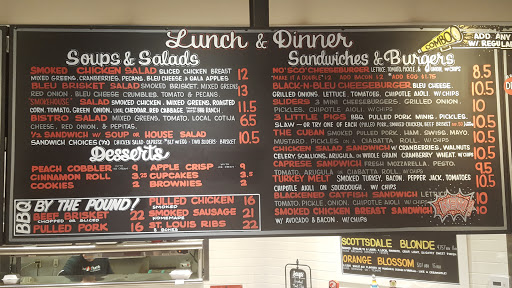 Lunch & Dinner
COMBO
ADD ANY
W/ REGULAR
Soups & Salads
SMOKED CHICKEN SALAD SLICED CHICKEN BREAST 12
MIXED GREENS, CRANBERRIES, PECANS, BLEU CHEESE & GALA APPLES
BLEU BRISKET SALAD SMOKED BRISKET, MIXED GREENS 13
RED ONION, BLEU CHEESE CRUMBLES, TOMATO & PECANS
SMOKEHOUSE SALAD SMOKED CHICKEN, MIXED GREENS, ROASTED 11.5
CORN, TOMATO, GREEN ONION, CHEDDAR, RED CABBAGE
BISTRO SALAD MIXED GREENS, TOMATO, LOCAL COTIJA 6.5
CHEESE, RED ONION, & PEPITAS
½ SANDWICH W/ SOUP OR HOUSE SALAD 10.5
SANDWICH CHOICES (½) CHICKEN SALAD BRISKET
Desserts
PEACH COBBLER 9 APPLE CRISP 9
CINNAMON ROLL 3.25 CUPCAKES 3
COOKIES 2 BROWNIES 2
BBQ BY THE POUND!
PULLED CHICKEN 16
SMOKED
BEEF BRISKET 22 SMOKED SAUSAGE 21
CHOPPED OR SLICED HOMEMADE
PULLED PORK 16 ST LOUIS RIBS 22
Sandwiches & Burgers
MO'SCO CHEESEBURGER LETTUCE, TOMATO, PICKLE & ONION, W/ CHIPS 8.5
*MAKE IT A DOUBLE *ADD BACON 1.5 *ADD EGG
BLACK-N-BLEU CHEESEBURGER BLEU CHEESE, 10.5
GRILLED ONIONS, LETTUCE, TOMATOES, CHIPOTLE AIOLI W/ CHIPS
SLIDERS 3 MINI CHEESEBURGERS, GRILLED ONION, 10
PICKLES, CHIPOTLE AIOLI, W/ CHIPS
3 LITTLE PIGS BBQ PULLED PORK MINIS, PICKLES,
SLAW - OR TRY ONE OF EACH
THE CUBAN SMOKED PULLED PORK, HAM, SWISS, MAYO,
MUSTARD, PICKLES, W/ CHIPS
CHICKEN SALAD SANDWICH W/ CRANBERRIES, WALNUTS
CELERY, SCALLIONS, ARUGULA, ON WHOLE GRAIN CRANBERRY WHEAT, W/ CHIPS
CAPRESE SANDWICH FRESH MOZZARELLA, PESTO, 9.5
TOMATO, ARUGULA ON CIABATTA ROLL, W/ CHIPS
TURKEY MELT SMOKED TURKEY, BACON, PEPPER JACK, TOMATOES
CHIPOTLE AIOLI ON SOURDOUGH, W/ CHIPS
BLACKENED CATFISH SANDWICH LETTUCE
TOMATO, PICKLE, ONION, CHIPOTLE AIOLI W/ CHIPS
SMOKED CHICKEN BREAST SANDWICH
W/ AVOCADO & BACON W/ CHIPS
SCOTTSDALE BLONDE
ORANGE BLOSSOM